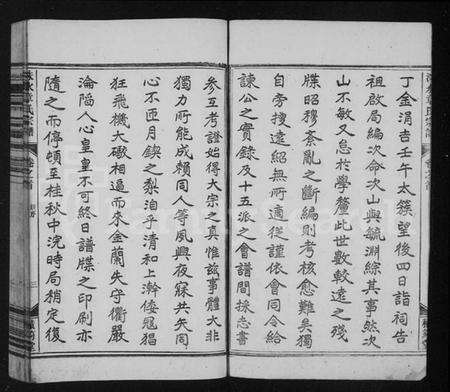 丁金涓吉壬午太簇望後四日詣祠告
祖啟局編次命次山與毓淵綜其事然次
山不敏又怠於學釐此世數較遠之殘
牒昭穆紊亂之斷編則考核愈難爰獨
自旁搜遠紹無所適從謹依會同令給
諫公之實錄及十五派之會譜間採志書
參互考證始得大宗之真惟茲事體大非
獨力所能成賴同人等夙興夜寐共矢同
心不匝月鍥之梨洎乎清和上澣倭寇猖
狂飛機大礮相逼而來金蘭失守衢嚴
淪陷人心皇皇不可終日譜牒之印刷亦
隨之而停頓至桂秋中浣時局稍定復